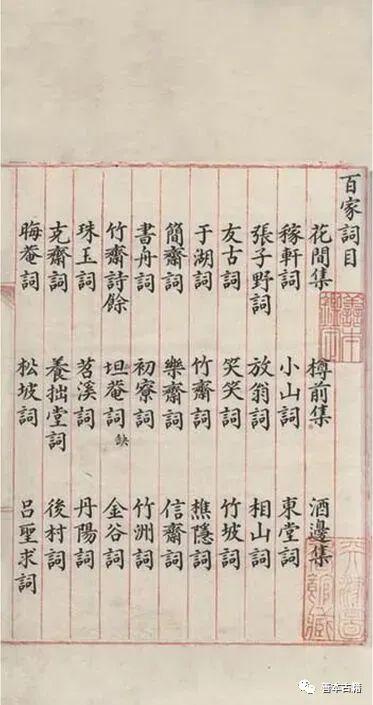 百家詞目
花間集 樽前集 酒邊集
稼軒詞 小山詞 東堂詞
張子野詞 放翁詞 相山詞
友古詞 笑笑詞 竹坡詞
于湖詞 竹齋詞 樵隱詞
簡齋詞 樂齋詞 信齋詞
書舟詞 初寮詞 竹洲詞
竹齋詩餘 坦菴詞缺 金谷詞
珠玉詞 苕溪詞 丹陽詞
克齋詞 養拙堂詞 後村詞
晦菴詞 松坡詞 呂聖求詞
善本古籍